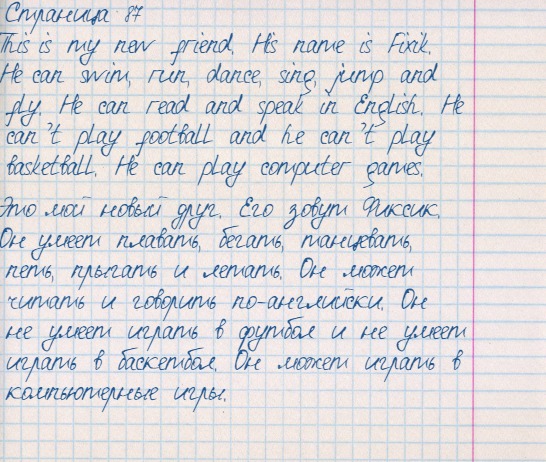 Страница 87
This is my new friend. His name is Fixik.
He can swim, run, dance, sing, jump and
fly. He can read and speak in English. He
can't play football and he can't play
basketball. He can play computer games.
Это мой новый друг. Его зовут Фиксик.
Он умеет плавать, бегать, танцевать,
петь, прыгать и летать. Он может
читать и говорить по-английски. Он
не умеет играть в футбол и не умеет
играть в баскетбол. Он может играть в
компьютерные игры.